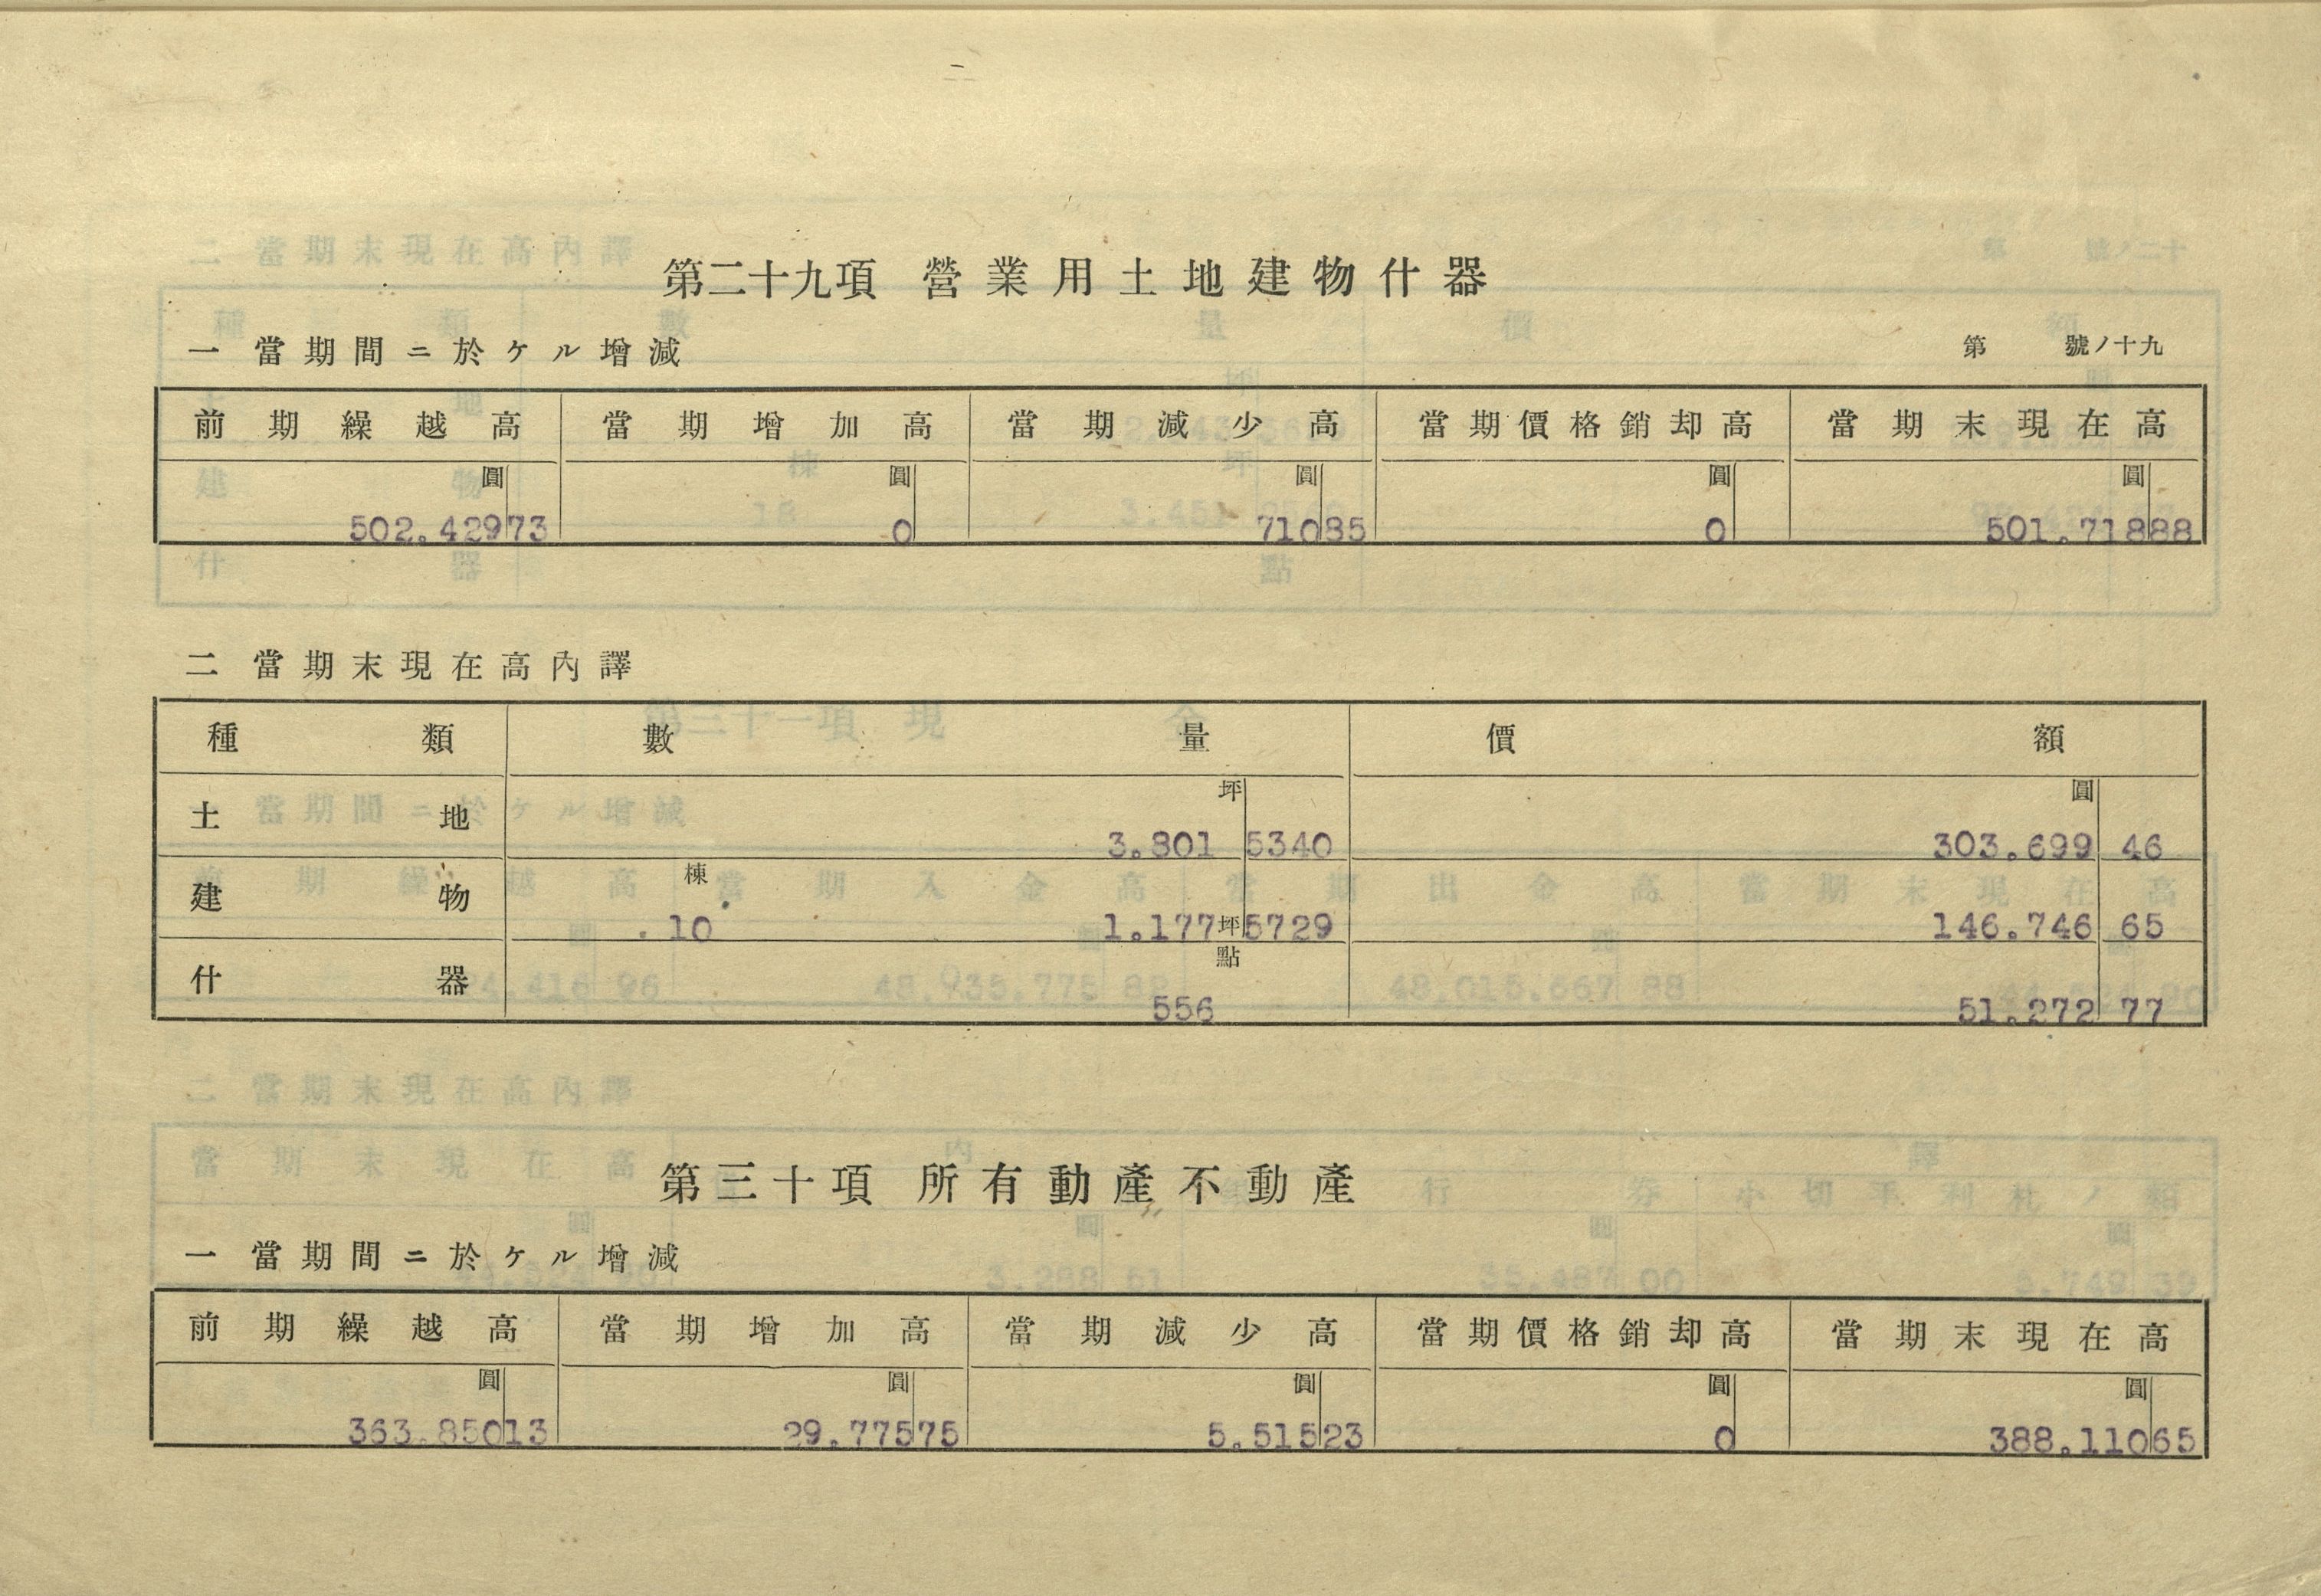 第二十九項 營業用土地建物什器
一 當期間ニ於ケル增減 第 號ノ十九
前期繰越高 當期增加高 當期減少高 當期價格銷却高 當期末現在高
圓 圓 圓 圓 圓
502.42973 0 71085 0 501.71888
二 當期末現在高內譯
種類 數量 價額
坪 圓
土地 3.801 5340 303.699 46
棟
建物 10 1.177 坪 5729 146.746 65
點
什器 556 51.272 77
第三十項 所有動產不動產
一 當期間ニ於ケル增減
前期繰越高 當期增加高 當期減少高 當期價格銷却高 當期末現在高
圓 圓 圓 圓 圓
363.85013 29.77575 5.51523 0 388.11065